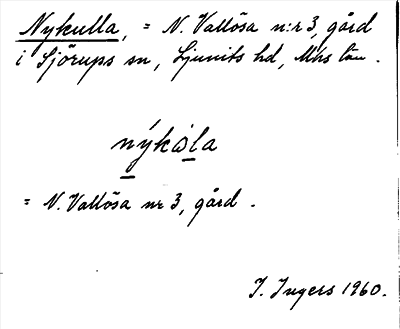 Nykulla, = N. Vallösa n:r 3, gård
i Sjörups sn, Ljunits hd, Mhs län.
nýkωla
= N. Vallösa nr 3, gård.
I. Ingers 1960.